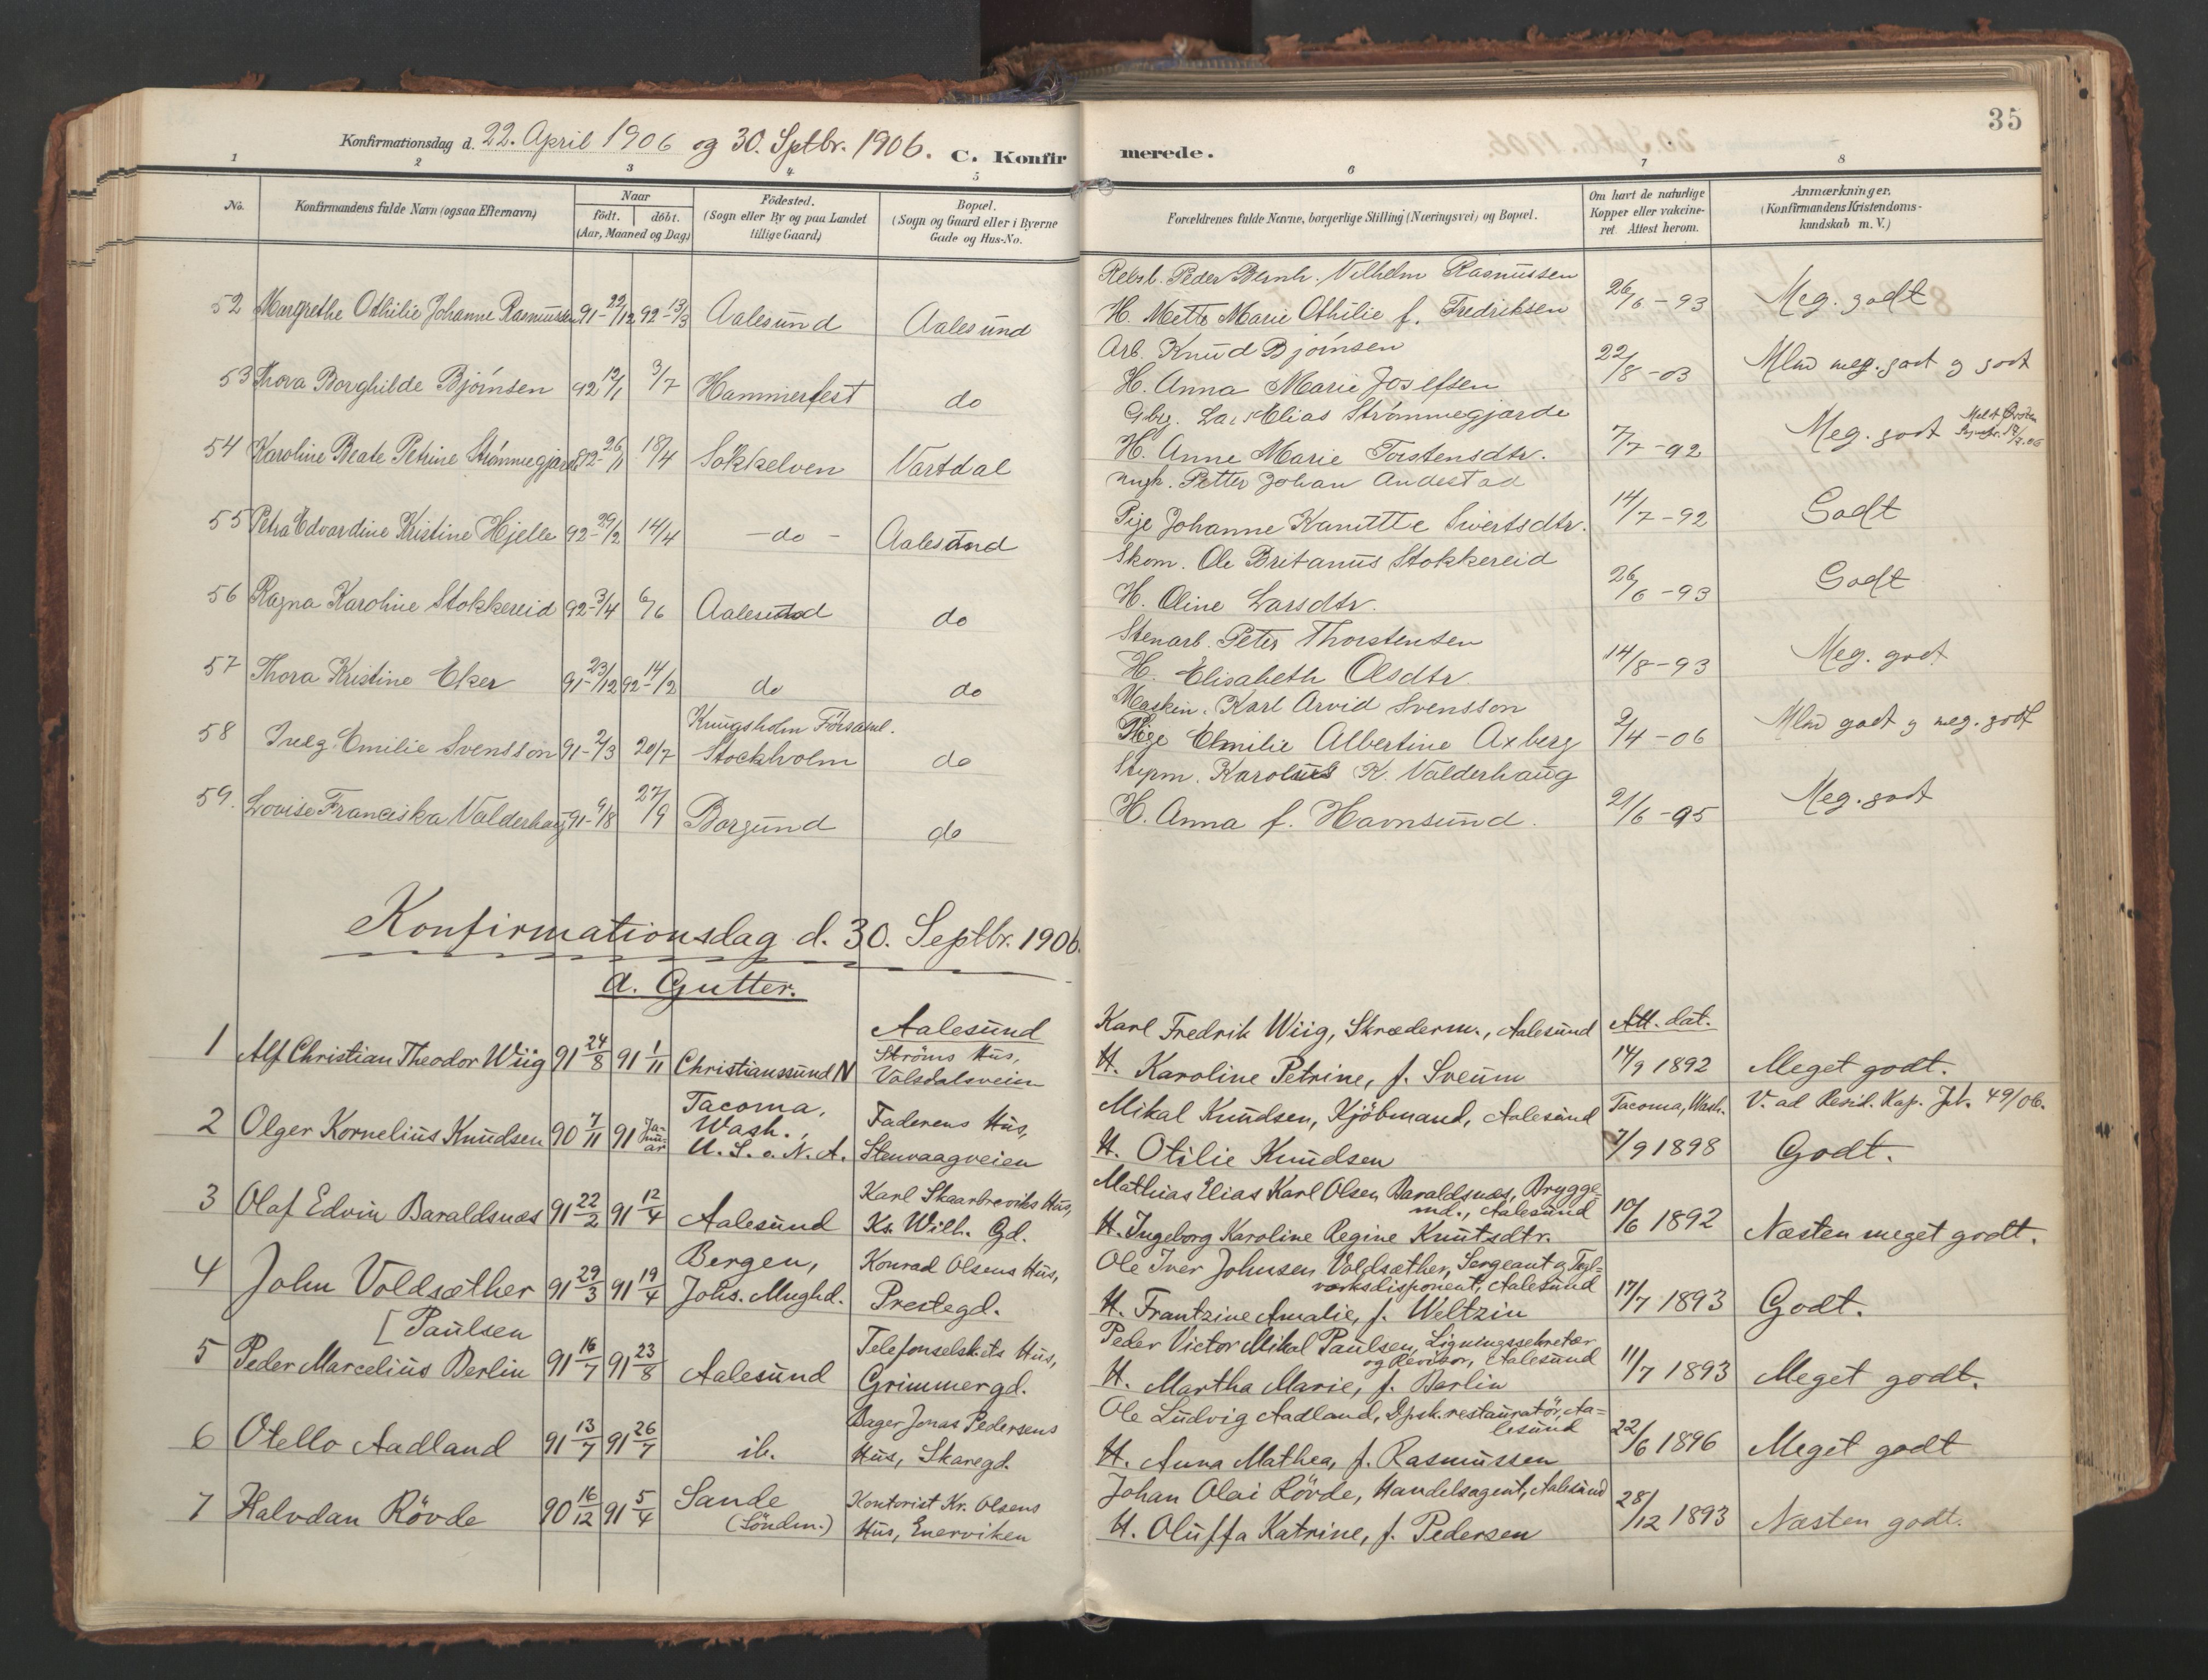 35
Konfirmationsdag d. 22. April 1906 og 30. Septbr. 1906. C. Konfirmerede.
1 2 3 4 5 6 7 8
No.
Konfirmandens fulde Navn (ogsaa Efternavn)
Naar
født. døbt.
(Aar, Maaned og Dag)
Födested.
(Sogn eller By og paa Landet
tillige Gaard)
Bopæl.
(Sogn og Gaard eller i Byerne
Gade og Hus-No.
Forældrenes fulde Navne, borgerlige Stilling (Næringsvei) og Bopæl.
Om havt de naturlige
Kopper eller vakcine-
ret. Attest herom.
Anmærkninger.
(Konfirmandens Kristendoms-
kundskab m. V.)
Peder Bernh. Vilhelm Rasmussen
52 Margrethe Othilie Johanne Rasmussen 91-22/12 92-13/3 Aalesund Aalesund H. Mette Marie Othilie f. Fredriksen 26/6-93 Meg. godt
Arb. Knud Bjørnsen
53 Thora Borghilde Bjørnsen 92 12/1 3/7 Hammerfest do H. Anna Marie Josefsen 22/8-03 Mlm meg. godt og godt
Gbrg. Lars Elias Strømmegjærde
54 Karoline Beate Petrine Strømmegjærde 92-26/1 18/4 Søkkelven Vartdal H. Anne Marie Torstensdtr. 7/7-92 Meg. godt
Ungk. Petter Johan Andestad
55 Petra Edvardine Kristine Hjelle 92-29/2 14/4 -do- Aalesund Pige Johanne Kanutte Sivertsdtr. 14/7-92 Godt
Skom. Ole Britanus Stokkereid
56 Ragna Karoline Stokkereid 92-3/4 6/6 Aalesund do H. Oline Larsdtr. 26/6-93 Godt
Stenarb. Peter Thorstensen
57 Thora Kristine Eker 91-23/12 92-14/2 do do H. Elisabeth Olsdtr. 14/8-93 Meg. godt
Kungsholm Församl. Maskin. Karl Arvid Svensson
58 Emilie Svensson 91-2/3 20/7 Stockholm do Pige Emilie Albertine Axberg 2/4-06 Mlm godt og meg. godt
Styrm. Karolus K. Valderhaug
59. Lovise Franciska Valderhaug 91-9/8 27/9 Borgund do H. Anna f. Havnsund. 21/6-95 Meg. godt
Konfirmationsdag d. 30. Septbr. 1906.
a. Gutter.
Aalesund Karl Fredrik Wiig, Skræderm., Aalesund Att. dat.
1 Alf Christian Theodor Wiig 91 24/8 91 1/11 Christianssund N Ströms Hus, Volsdalsveien H. Karoline Petrine, f. Sveum 14/9 1892 Meget godt.
Tacoma, Mikal Knudsen, Kjöbmand, Aalesund Tacoma, Wash. V. ad Resid. Kap. Jr. 49/06.
2 Olger Kornelius Knudsen 90 7/11 91 Januar Wash., U. S. o. N. A. Faderens Hus, Stenvaagveien H. Otilie Knudsen 7/9 1898 Godt.
Karl Skaarbreviks Hus, Mathias Elias Karl Olsen Baraldsnæs, Brygge-
md., Aalesund
3 Olaf Edvin Baraldsnæs 91 22/2 91 12/4 Aalesund Ks. Wilh. Gd. H. Ingeborg Karoline Regine Knutsdtr. 10/6 1892 Næsten meget godt.
Bergen, Konrad Olsens Hus, Ole Iver Johnsen Voldsæther, Sergeant og Tegl-
værksdisponent, Aalesund
4 John Voldsæther 91 29/3 91 19/4 Johs. Mnghd. Prestegd. H. Frantzine Amalie, f. Weltzin 17/7 1893 Godt.
[Paulsen Telefonselsk.ets Hus, Peder Victor Mikal Paulsen, Ligningssekretær
og Revisor, Aalesund
5 Peder Marcelius Berlin 91 16/7 91 23/8 Aalesund Grimmergd. H. Martha Marie, f. Berlin 11/7 1893 Meget godt.
Bager Jonas Pedersens Ole Ludvig Aadland, Dpsk.restauratör, Aa-
lesund
6 Otello Aadland 91 13/7 91 26/7 ib. Hus, Skaregd. H. Anna Mathea, f. Rasmussen 22/6 1896 Meget godt
Sande Kontorist Kr. Olsens Johan Olai Rövde, Handelsagent, Aalesund
7 Halvdan Rövde 90 16/12 91 5/4 (Söndm.) Hus, Enerviken H. Oluffa Katrine, f. Pedersen 28/12 1893 Næsten godt.